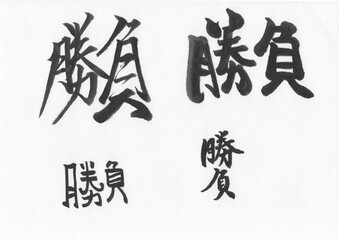 勝負
勝負
勝負
勝負